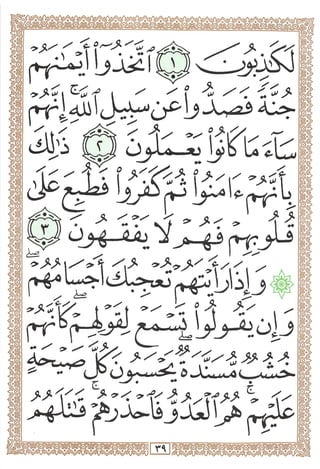 لَكَٰذِبُونَ ١ ٱتَّخَذُوٓا۟ أَيْمَٰنَهُمْ
جُنَّةً فَصَدُّوا۟ عَن سَبِيلِ ٱللَّهِ ۚ إِنَّهُمْ
سَآءَ مَا كَانُوا۟ يَعْمَلُونَ ٢ ذَٰلِكَ
بِأَنَّهُمْ ءَامَنُوا۟ ثُمَّ كَفَرُوا۟ فَطُبِعَ عَلَىٰ
قُلُوبِهِمْ فَهُمْ لَا يَفْقَهُونَ ٣
۞ وَإِذَا رَأَيْتَهُمْ تُعْجِبُكَ أَجْسَامُهُمْ ۖ
وَإِن يَقُولُوا۟ تَسْمَعْ لِقَوْلِهِمْ ۖ كَأَنَّهُمْ
خُشُبٌ مُّسَنَّدَةٌ ۖ يَحْسَبُونَ كُلَّ صَيْحَةٍ
عَلَيْهِمْ ۚ هُمُ ٱلْعَدُوُّ فَٱحْذَرْهُمْ ۚ قَٰتَلَهُمُ
٣٩